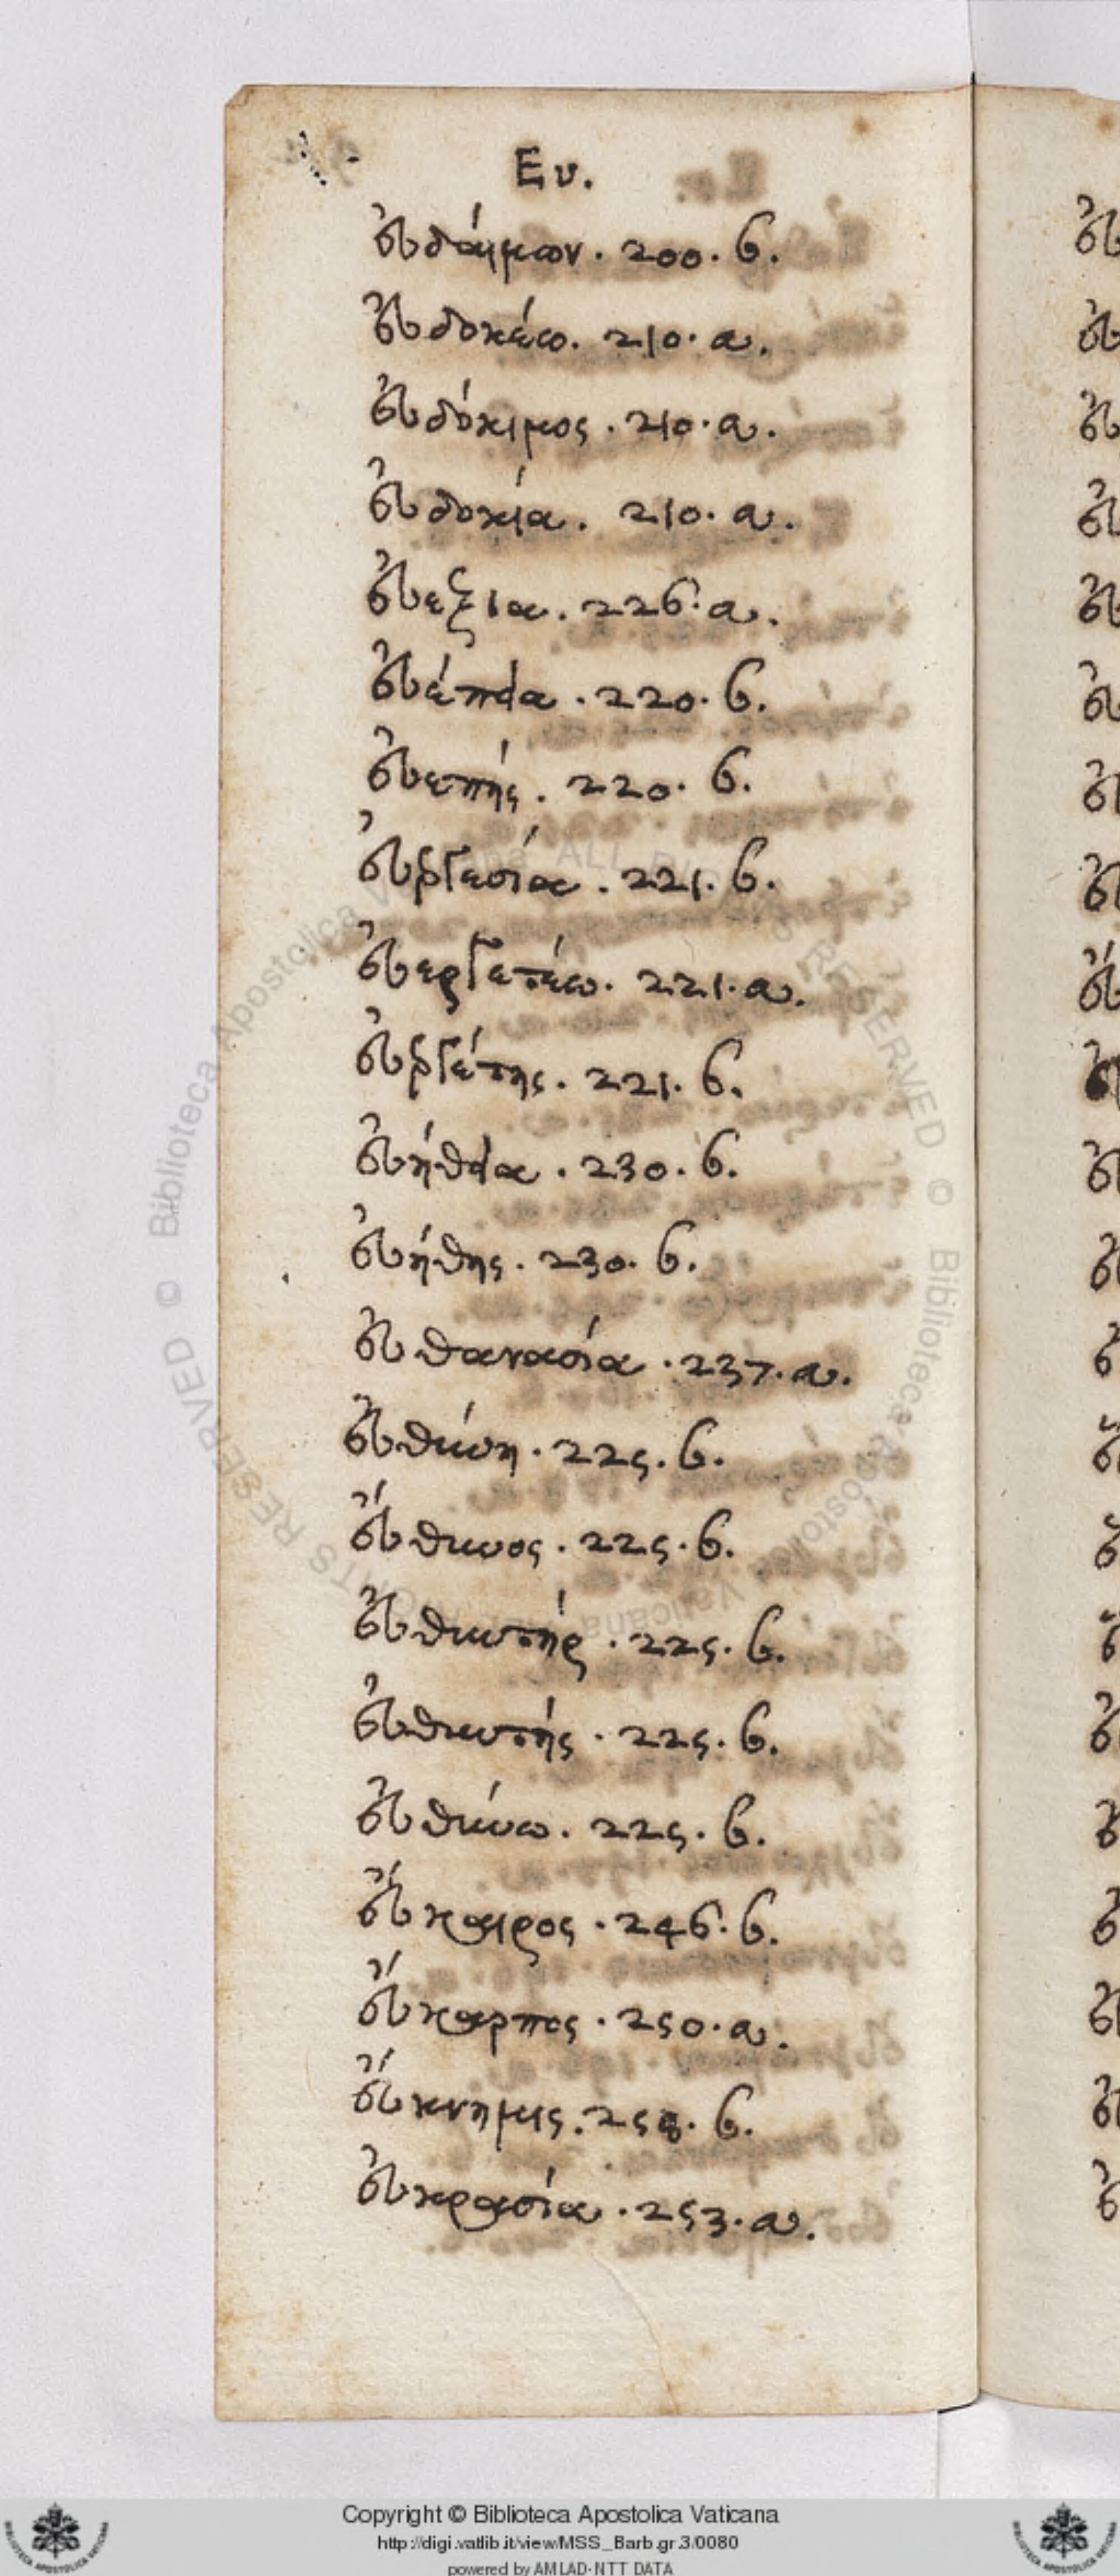 Ευ.
εὐδάιμων . 200. b.
εὐδοκέω. 210. a.
εὐδόκιμος . 210. a.
εὐδοκία . 210. a.
εὐεξια . 226. a.
εὐέπεια . 220. b.
εὐεπής . 220. b.
εὐεργεσία . 221. b.
εὐεργετέω . 221. a.
εὐεργέτης . 221. b.
εὐήθεια . 230. b.
εὐήθης . 230. b.
εὐθανασία . 237. a.
εὐθύνη . 225. b.
εὔθυνος . 225. b.
εὐθυντήρ . 225. b.
εὐθυντής . 225. b.
εὐθύνω . 225. b.
εὔκαιρος . 246. b.
εὔκαρπος . 250. a.
εὔκνημις . 258. b.
εὐκρασία . 253. a.
Copyright © Biblioteca Apostolica Vaticana
http://digi.vatlib.it/view/MSS_Barb.gr.3/0080
powered by AMLAD-NTT DATA